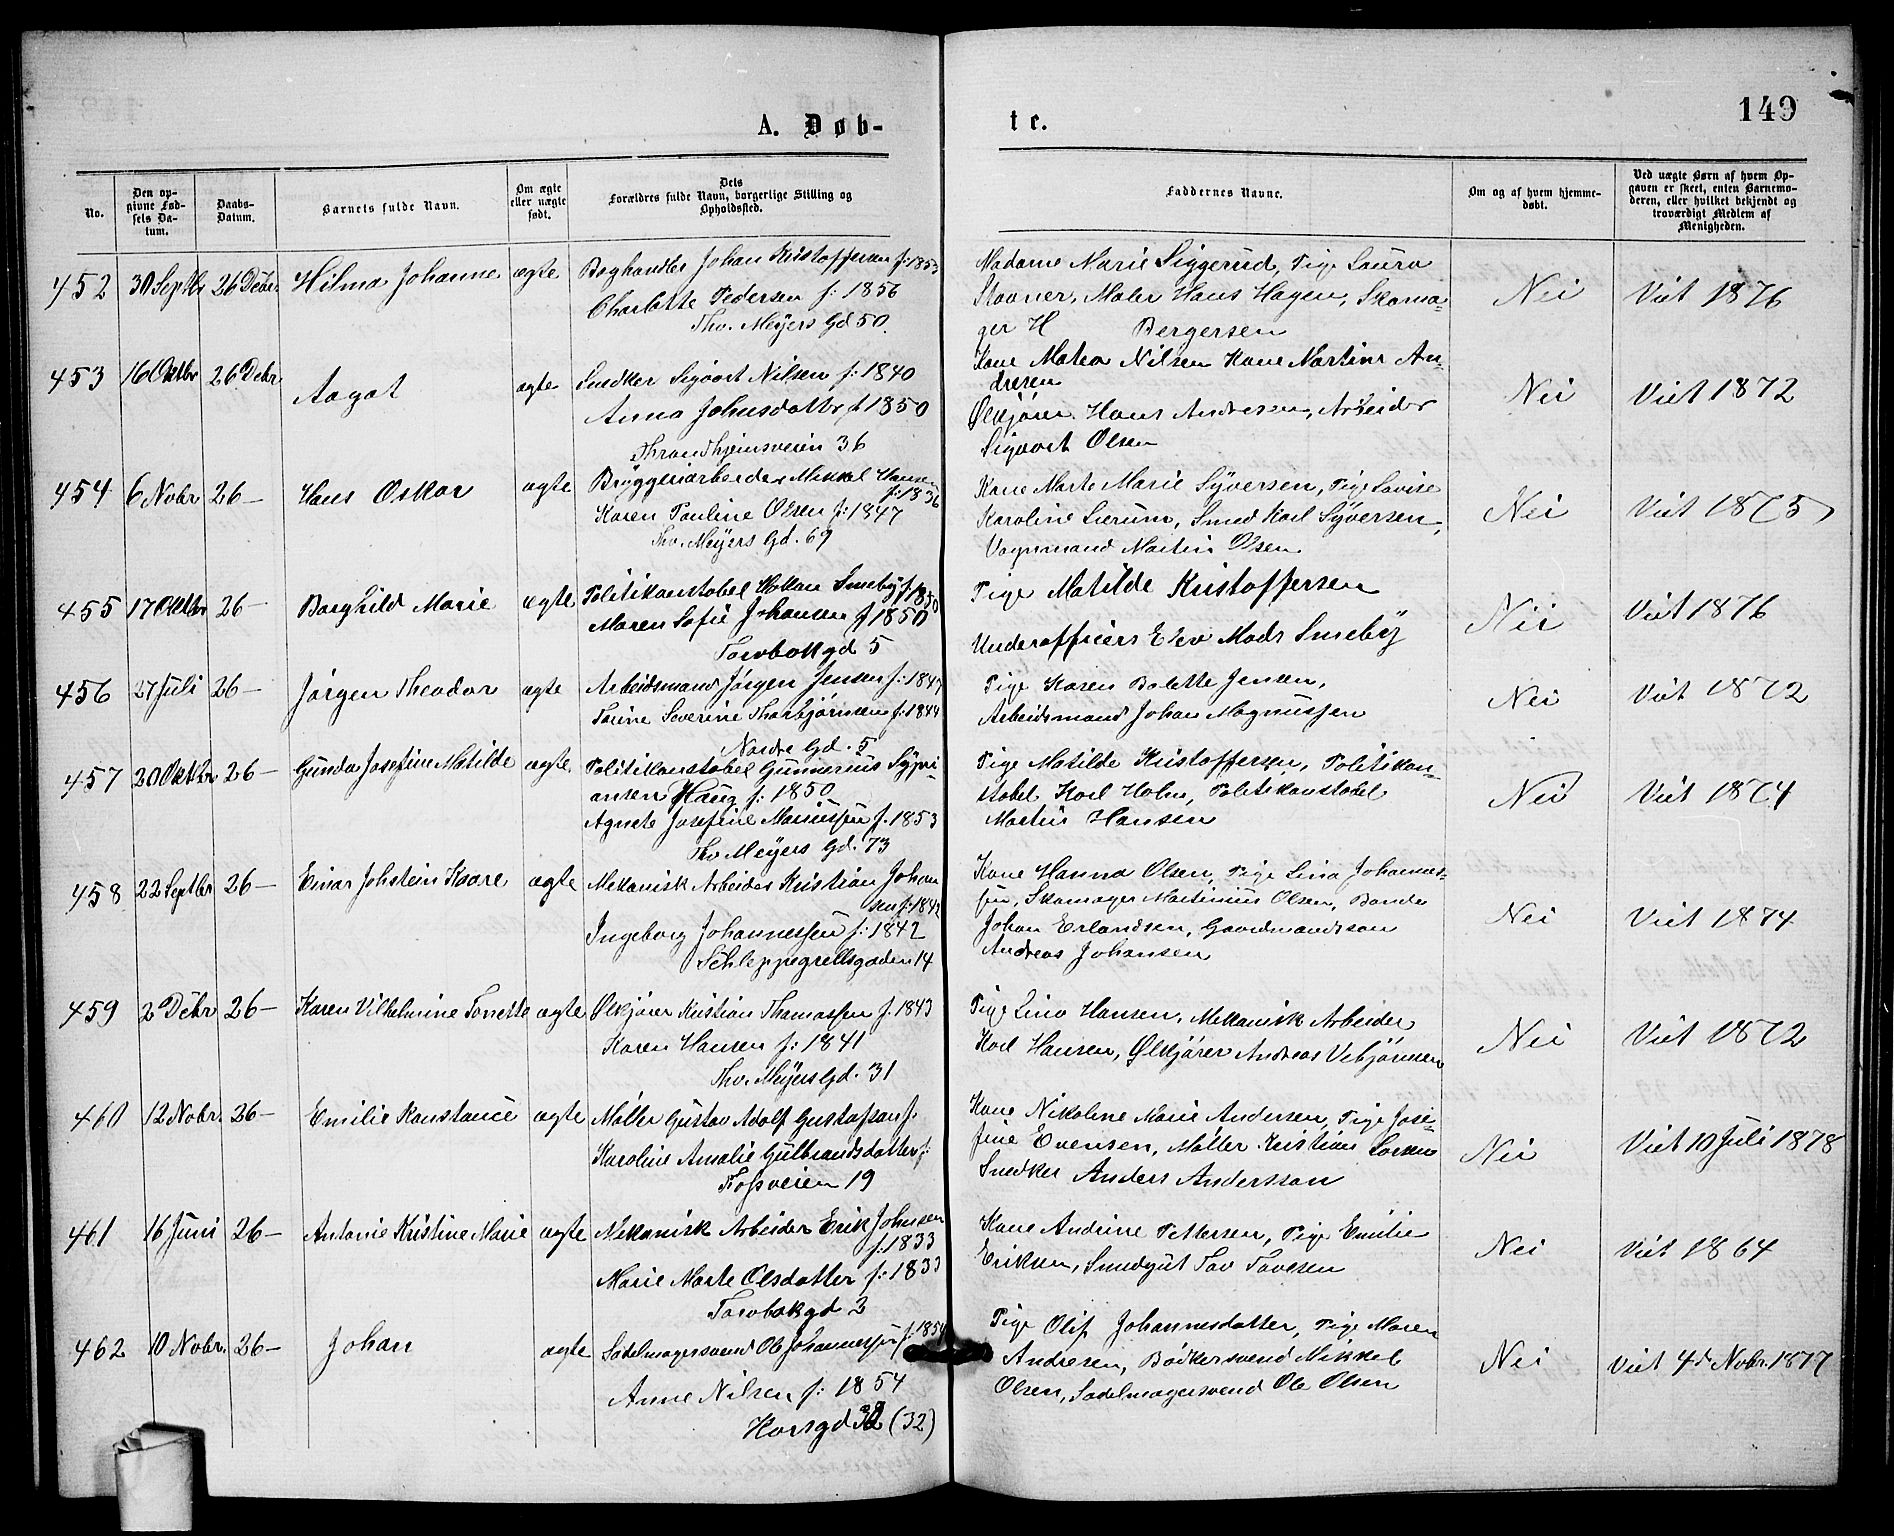 149
A. Døb-
te.
No.
Den op-
givne Fød-
sels Da-
tum.
Daabs-
Datum.
Barnets fulde Navn.
Om ægte
eller uægte
født.
Dets
Forældres fulde Navn, borgerlige Stilling og
Opholdssted.
Faddernes Navne.
Om og af hvem hjemme-
døbt.
Ved uægte Børn af hvem Op-
gaven er skeet, enten Barnemo-
deren, eller hvilket bekjendt og
troværdigt Medlem af
Menigheden.
452 30 Septbr 26 Debr. Hilma Johanne ægte
Boghandler Johan Kristoffersen f: 1853
Charlotte Pedersen f: 1856
Thv. Meÿers Gd 50.
Madame Marie Siggerud, Pige Laura
Stavner, Maler Hans Hagen, Skoma-
ger H Bergersen
Nei
Viet 1876
453 16 Oktbr 26 Debr Aagot ægte
Snedker Sigvart Nilsen f: 1840
Anna Johnsdatter f 1850
Throndhjemsveien 36
Kone Matea Nilsen Kone Martine An-
dresen
Ølkjører Hans Andresen, Arbeider
Sigvart Olsen
Nei
Viet 1872
454 6 Nobr 26 — Hans Oskar ægte
Brÿggeriarbeider Mikkel Hansen
f: 1836
Karen Pauline Olsen f: 1847
Thv. Meÿers Gd. 69
Kone Marte Marie Sÿversen, Pige Lovise
Karoline Lierum, Smed Karl Sÿversen,
Vognmand Martin Olsen
Nei
Viet 1875
455 17 Oktbr 26 — Borghild Marie ægte
Politikonstabel Håkan Smebÿ f 1850
Maren Sofie Johansen f 1850
Torvbakgd 5
Pige Matilde Kristoffersen
Underofficiers Elev Mads Smebÿ
Nei
Viet 1876
456 27 Juli 26 — Jørgen Theodor ægte
Arbeidsmand Jørgen Jensen f: 1847
Torine Severine Thorbjørnsen f: 1844
Nordre Gd. 5
Pige Karen Bolette Jensen,
Arbeidsmand Johan Magnussen
Nei
Viet 1872
457 20 Oktbr 26 — Gunda Josefine Matilde ægte
Politikonstabel Gunnerius Sÿpri-
ansen Haug f: 1850
Agnete Josefine Mariussen f. 1853
Thv Meÿers Gd. 73
Pige Matilde Kristoffersen, Politikon-
stabel Karl Holm, Politikonstabel
Martin Hansen
Nei
Viet 1874
458 22 Septbr 26 — Einar Johstein Kaare ægte
Mekanisk Arbeider Kristian Johan
sen f: 1842
Ingeborg Johannessen f: 1842
Schleppegrellsgaden 14
Kone Hanna Olsen, Pige Lina Johannes-
sen, Skomager Martinius Olsen, Bonde
Johan Erlandsen, Gaardmandsson
Andreas Johansen
Nei
Viet 1874
459 2 Debr 26 — Karen Vilhelmine Tonette ægte
Ølkjører Kristian Thomassen f. 1843
Karen Hansen f: 1841
Thv. Meÿers Gd. 31
Pige Lina Hansen, Mekanisk Arbeider
Karl Hansen, Ølkjører Andreas Vebjørnsen
Nei
Viet 1872
460 12 Nobr. 26 — Emilie Konstance ægte
Møller Gustav Adolf Gustafson f.
Karoline Amalie Gulbrandsdatter f:
Fossveien 19
Kone Nikoline Marie Andersen, Pige Jose-
fine Evensen, Møller Kristian Larsen
Snedker Anders Andersson
Nei
Viet 10 Juli 1878
461 16 Juni 26 — Antonie Kristine Marie ægte
Mekanisk Arbeider Erik Johnsen
f. 1833
Marie Marte Olsdatter f: 1833
Torvbakgd 2
Kone Andrine Pettersen, Pige Emilie
Eriksen, Smedgut Tov Tovesen
Nei
Viet 1864
462 10 Nobr. 26 — Johan ægte
Sadelmagersvend Ole Johannessen f. 1854
Anne Nilsen f: 1854
Korsgd 32 (32)
Pige Olif Johannesdatter, Pige Maren
Andresen, Bødkersvend Mikkel
Olsen, Sadelmagersvend Ole Olsen
Nei
Viet 4de Nobr. 1877